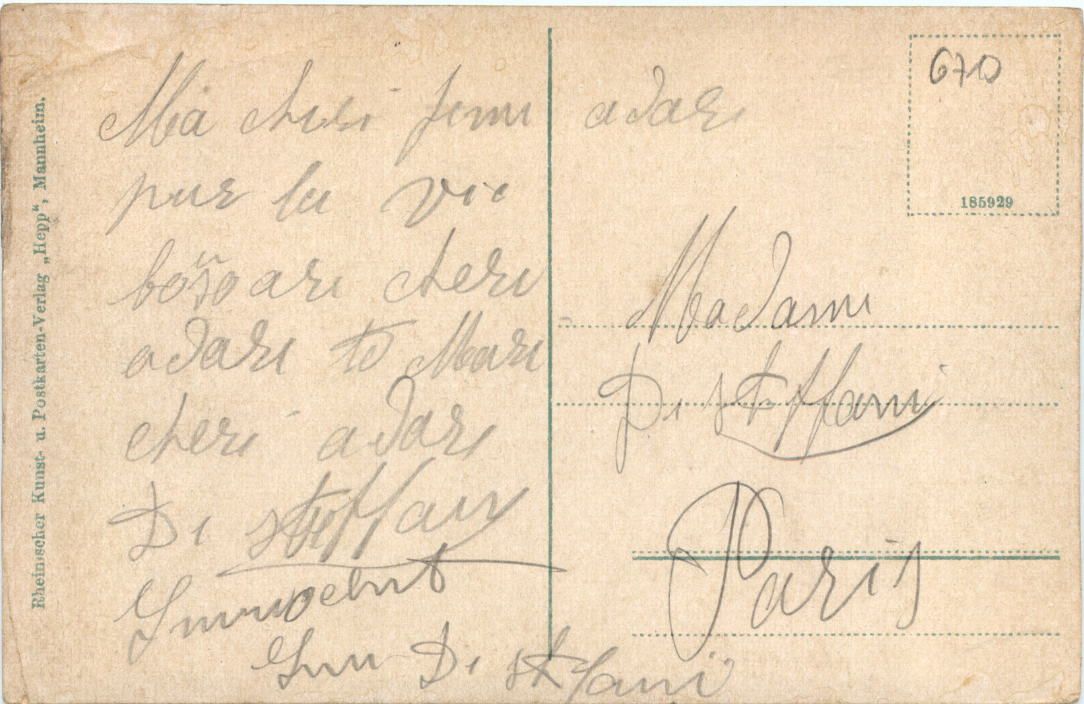 Rheinischer Kunst- u. Postkarten-Verlag „Hepp“, Mannheim.
Ma cheri femi adari
pur la vie
bosoari cheri
adari te Mari
cheri adari
Di steffani
Innocent
Di steffani
670
185929
Madami
Di steffani
Paris